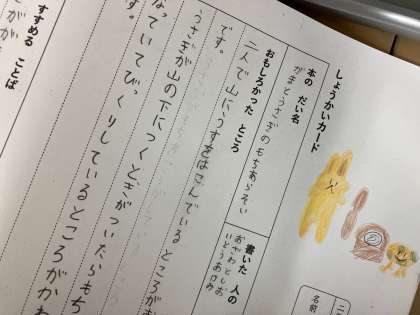 しょうかいカード
本の だい名
がまとうさぎのもちあらそい
書いた 人の
おざわとしお
いとうあきみ
名前
おもしろかった ところ
二人で山に、うすをはこんでいるところが
です。
うさぎが山の下につくとぎがついたらもち
なっていてびっくりしているところがかわ
す。
すすめる ことば